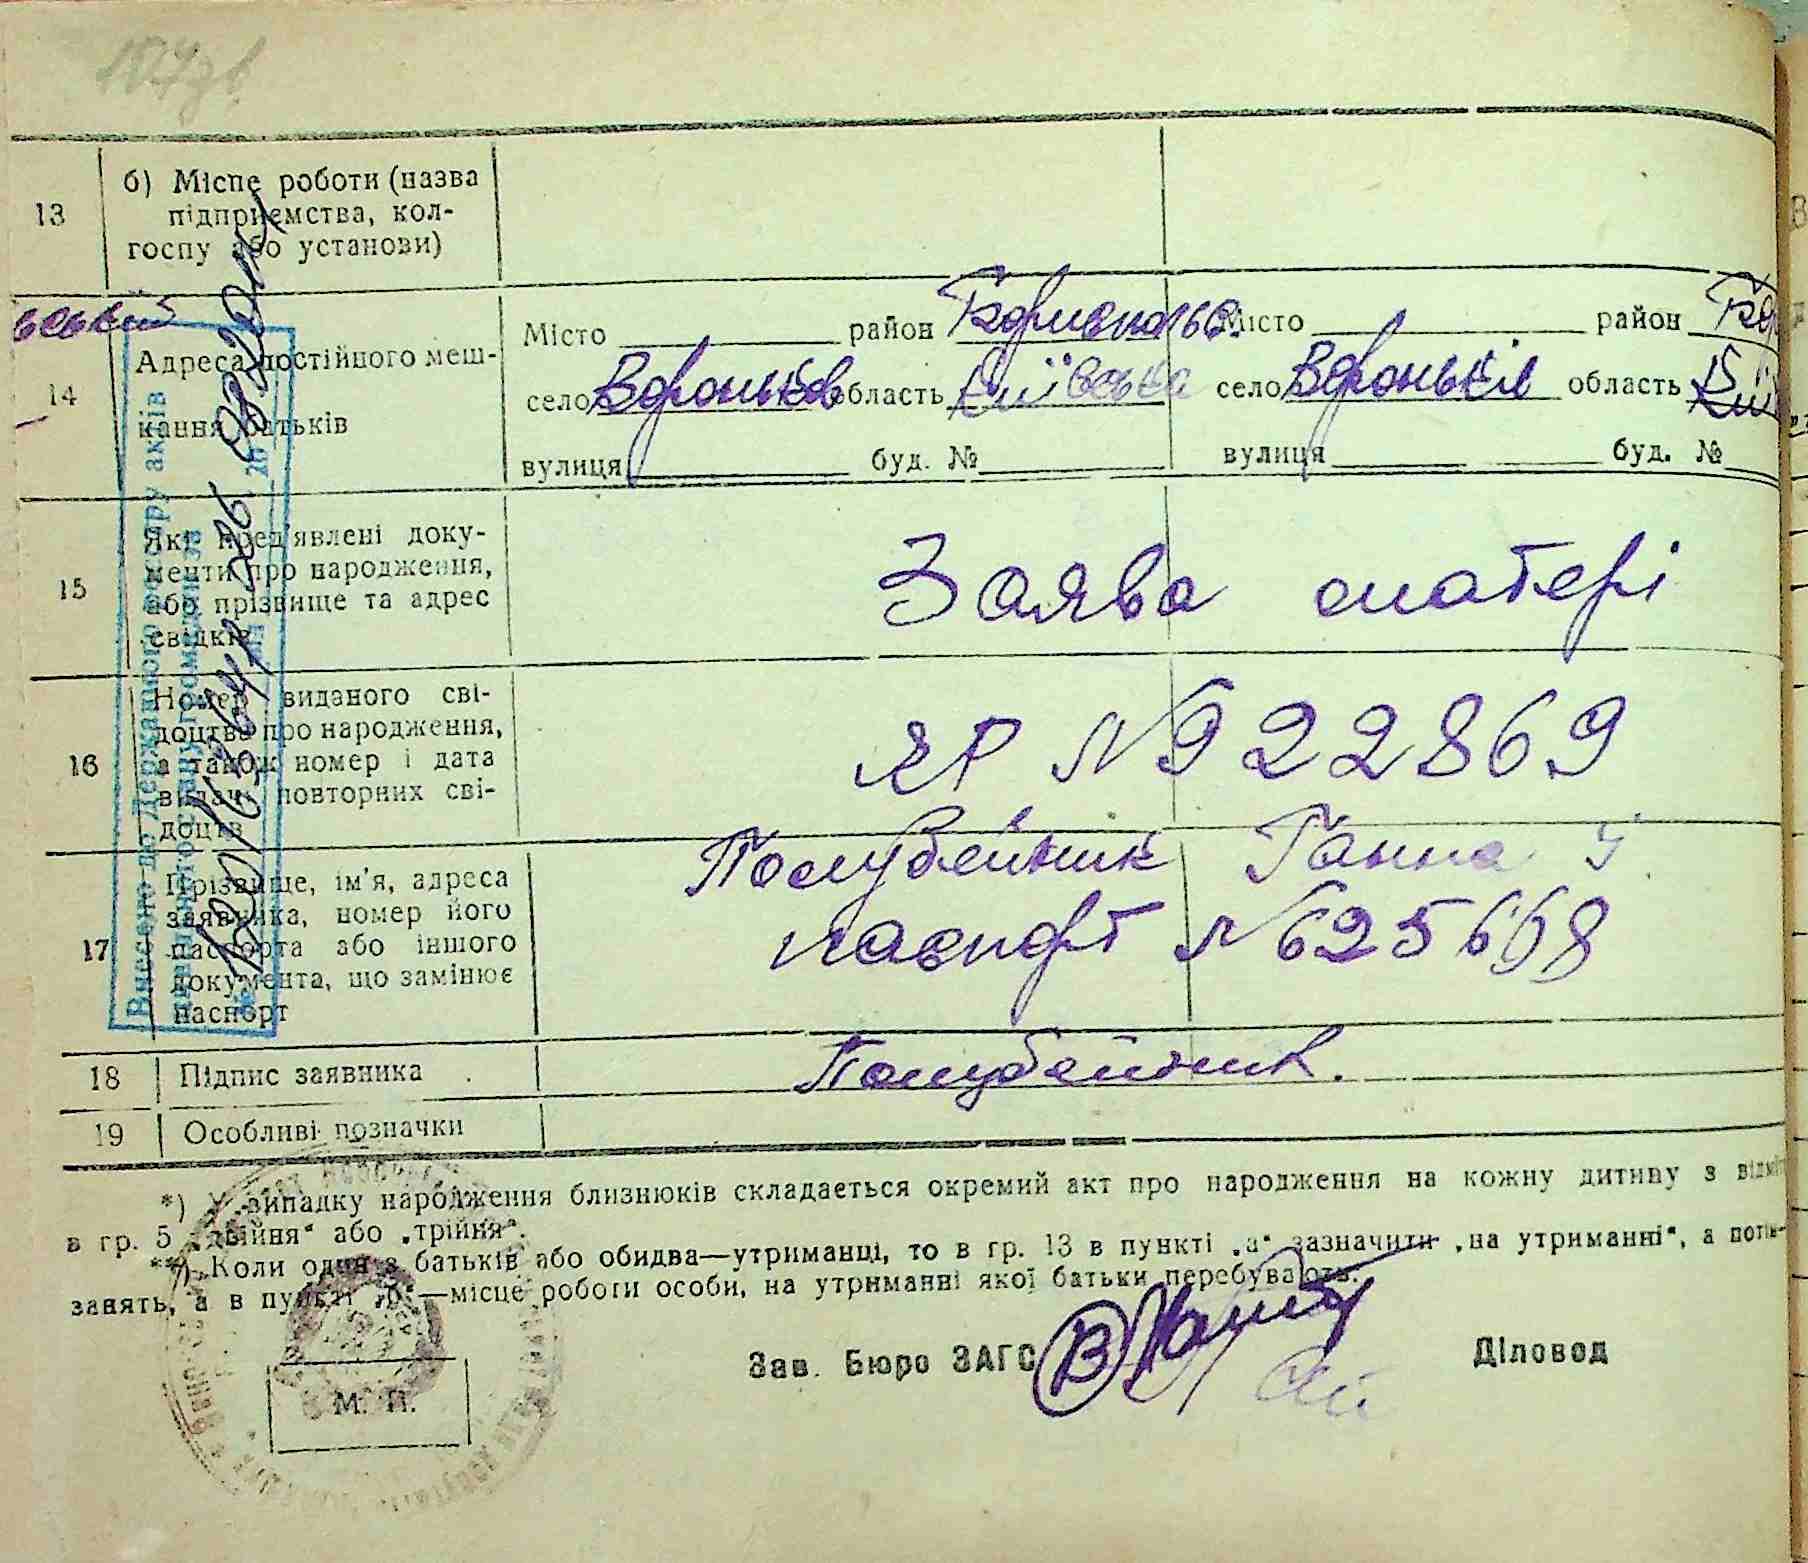 13
б) Місце роботи (назва
підприємства, кол-
госпу або установи)
14
Адреса постійного меш-
кання батьків
Місто район Бориспольс.
село Вороньков область Київська
вулиця буд. №
Місто район Бор
село Вороньків область Киї
вулиця буд. №
15
Які пред'явлені доку-
менти про народження,
або прізвище та адрес
свідків
Заява матері
16
Номер виданого сві-
доцтва про народження,
а також номер і дата
видачі повторних сві-
доцтв
ЯР № 922869
17
Прізвище, ім'я, адреса
заявника, номер його
паспорта або іншого
документа, що замінює
паспорт
Полубейник Ганна
паспорт № 625698
18
Підпис заявника
Полубейник.
19
Особливі позначки
Внесено до Державного реєстру актів
цивільного стану громадян за
*) У випадку народження близнюків складається окремий акт про народження на кожну дитину з відміт
в гр. 5 „двійня“ або „трійня“.
**) Коли один з батьків або обидва—утриманці, то в гр. 13 в пункті „а“ зазначити „на утриманні“, а
занять, а в пункті „б“—місце роботи особи, на утриманні якої батьки перебувають.
Зав. Бюро ЗАГС
Діловод
М. П.